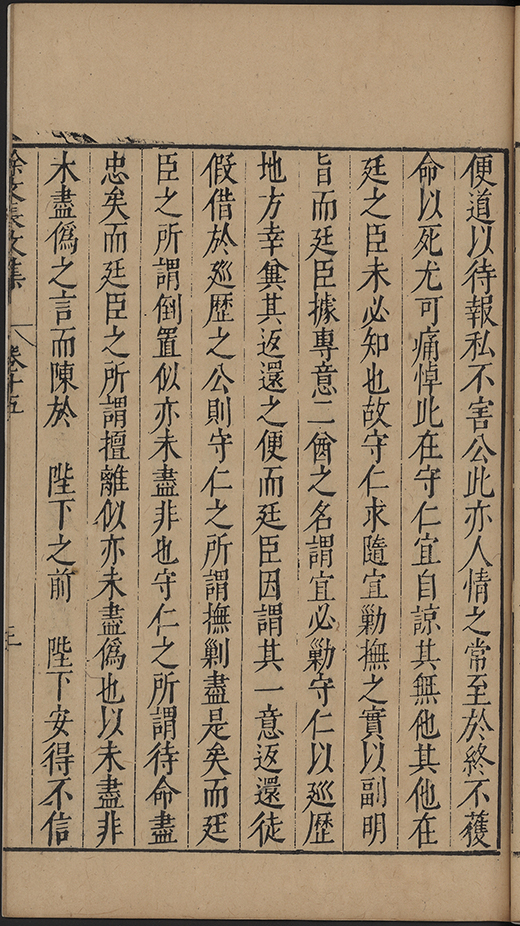 便道以待報私不害公此亦人情之常至於終不獲
命以死尤可痛悼此在守仁宜自諒其無他其他在
廷之臣未必知也故守仁求隨宜勦撫之實以副明
旨而廷臣據專意二酋之名謂宜必勦守仁以廵歷
地方幸兾其返還之便而廷臣因謂其一意返還徒
假借於廵歷之公則守仁之所謂撫剿盡是矣而廷
臣之所謂倒置似亦未盡非也守仁之所謂待命盡
忠矣而廷臣之所謂擅離似亦未盡僞也以未盡非
木盡僞之言而陳於　陛下之前　陛下安得不信
徐文長文集　卷十五　三